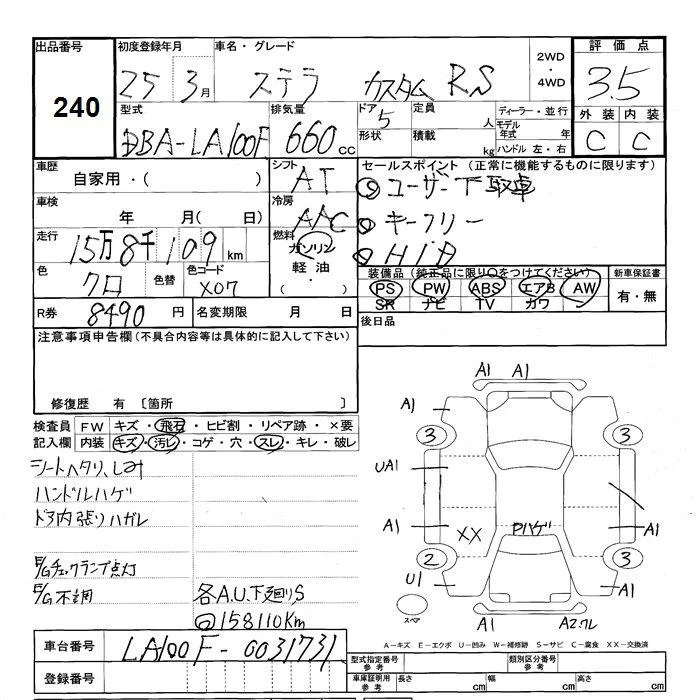 出品番号 初度登録年月 車名・グレード 2WD・4WD 評価点
240 25 3月 ステラ カスタム RS 3.5
型式 排気量 ドア 定員 人 ディーラー・並行 外装 内装
DBA-LA100F 660cc 5 形状 積載 kg モデル年式 年 ハンドル 左・右 C C
車歴 シフト セールスポイント (正常に機能するものに限ります)
自家用・( ) AT ユーザー下取車
車検 冷房
年 月( 日) AAC キーフリー
走行 燃料
15万8千109km ガソリン HID
色 色替 色コード 軽油・ 装備品 (純正品に限り○をつけてください) 新車保証書
クロ X07 PS PW ABS エアB AW 有・無
SR ナビ TV カワ
R券 8490円 名変期限 月 日 後日品
注意事項申告欄 (不具合内容等は具体的に記入して下さい)
修復歴 有 〔箇所
検査員 FW キズ・飛石・ヒビ割・リペア跡・×要
記入欄 内装 キズ・汚レ・コゲ・穴・スレ・キレ・破レ
シートヘタリ、しみ
ハンドルハゲ
ドア内張りハガレ
E/Gチェックランプ点灯
E/G不調
各A.U.下廻りS
158110Km
A1 A1
A1 A1
3 3
UA1
A1 XX Pハゲ A1
2 3
U1 A1
スペア A1 A2.フレ
A－キズ E－エクボ U－凹み W－補修跡 S－サビ C－腐食 XX－交換済
車台番号 LA100F-0031731
登録番号
型式指定番号 参考 類別区分番号 参考
車庫証明用 参考 長さ cm 幅 cm 高さ cm